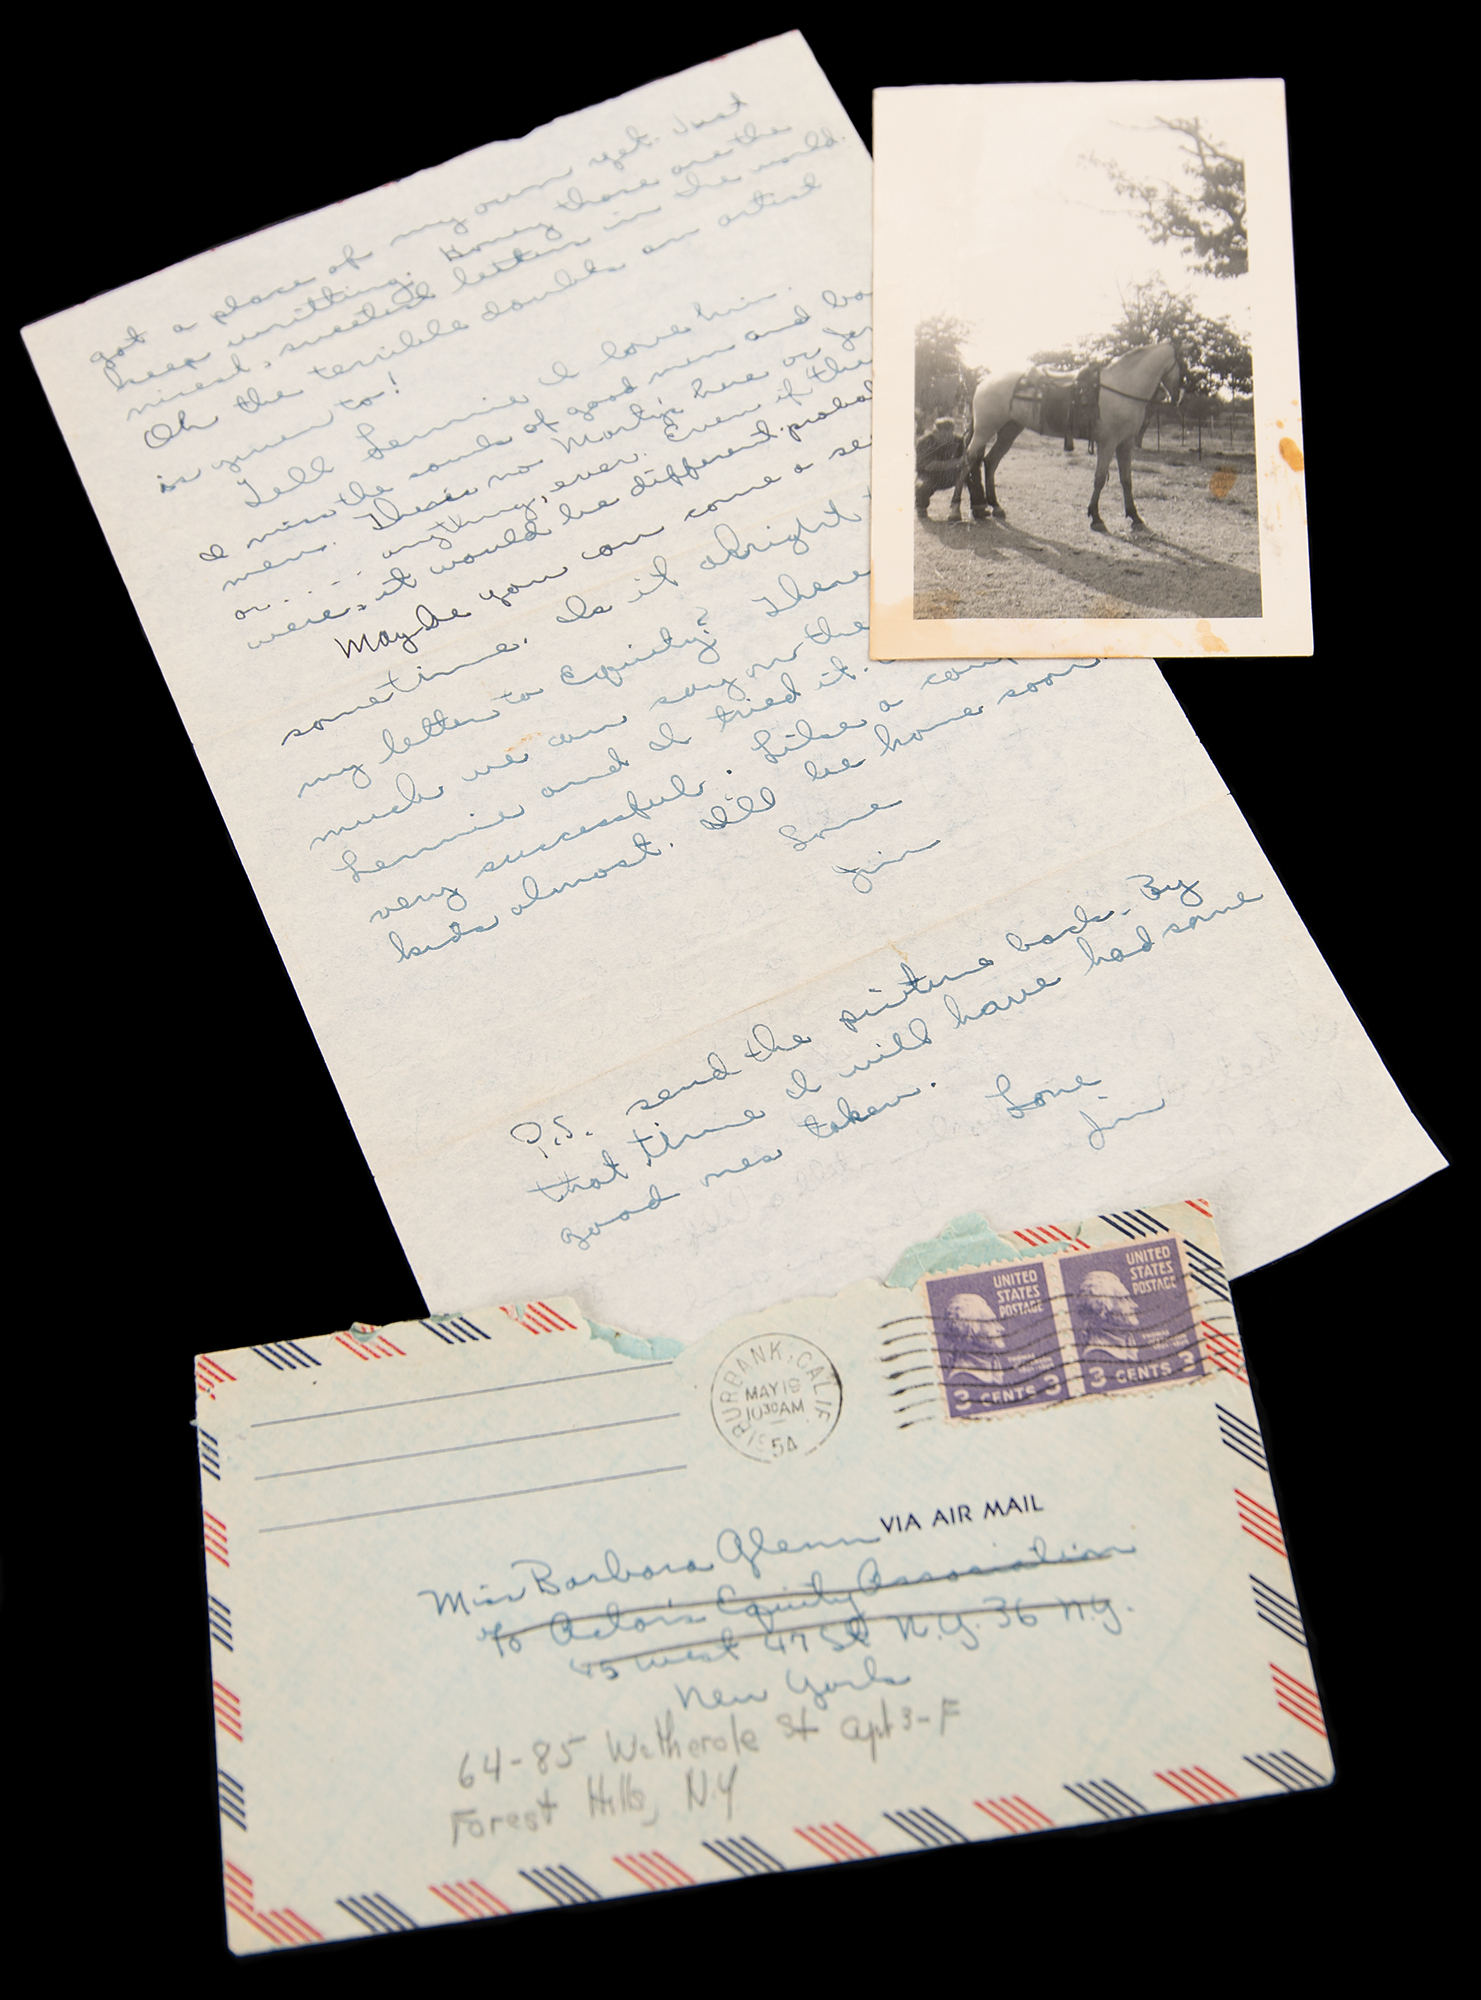 got a place of my own yet. Just
keep writting. Honey those are the
nicest, sweetest letters in the world.
Oh the terrible doubts an artist
is given to!
Tell Lennie I love him.
I miss the souls of good men and
men. There's no Marty's here or
or.... anything, ever. Even if
were, it would be different
Maybe you can come a
sometime. Is it alright
my letter to Equity? There
much we can say on the
Lennie and I tried it.
very successful. Like a
kids almost. I'll be home soon
Love
Jim
P.S. send the picture back. By
that time I will have had some
good ones taken. Love
Jim
UNITED
STATES
POSTAGE
3 CENTS 3
UNITED
STATES
POSTAGE
3 CENTS 3
BURBANK, CALIF
MAY 19
10 30 AM
54
VIA AIR MAIL
Miss Barbara Glenn
% Actor's Equity Association
45 West 47 St N.Y. 36 N.Y.
New York
64-85 Wetherole St apt 3-F
Forest Hills, N.Y